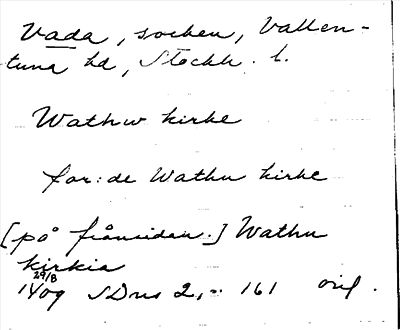 Vada, socken, Vallen-
tuna hd, Stockh. l.
Wathw kirke
for: de Wathu kirke
[på frånsidan.] Wathu
kirkia
29/8
1409 SDns 2, s. 161 orig.